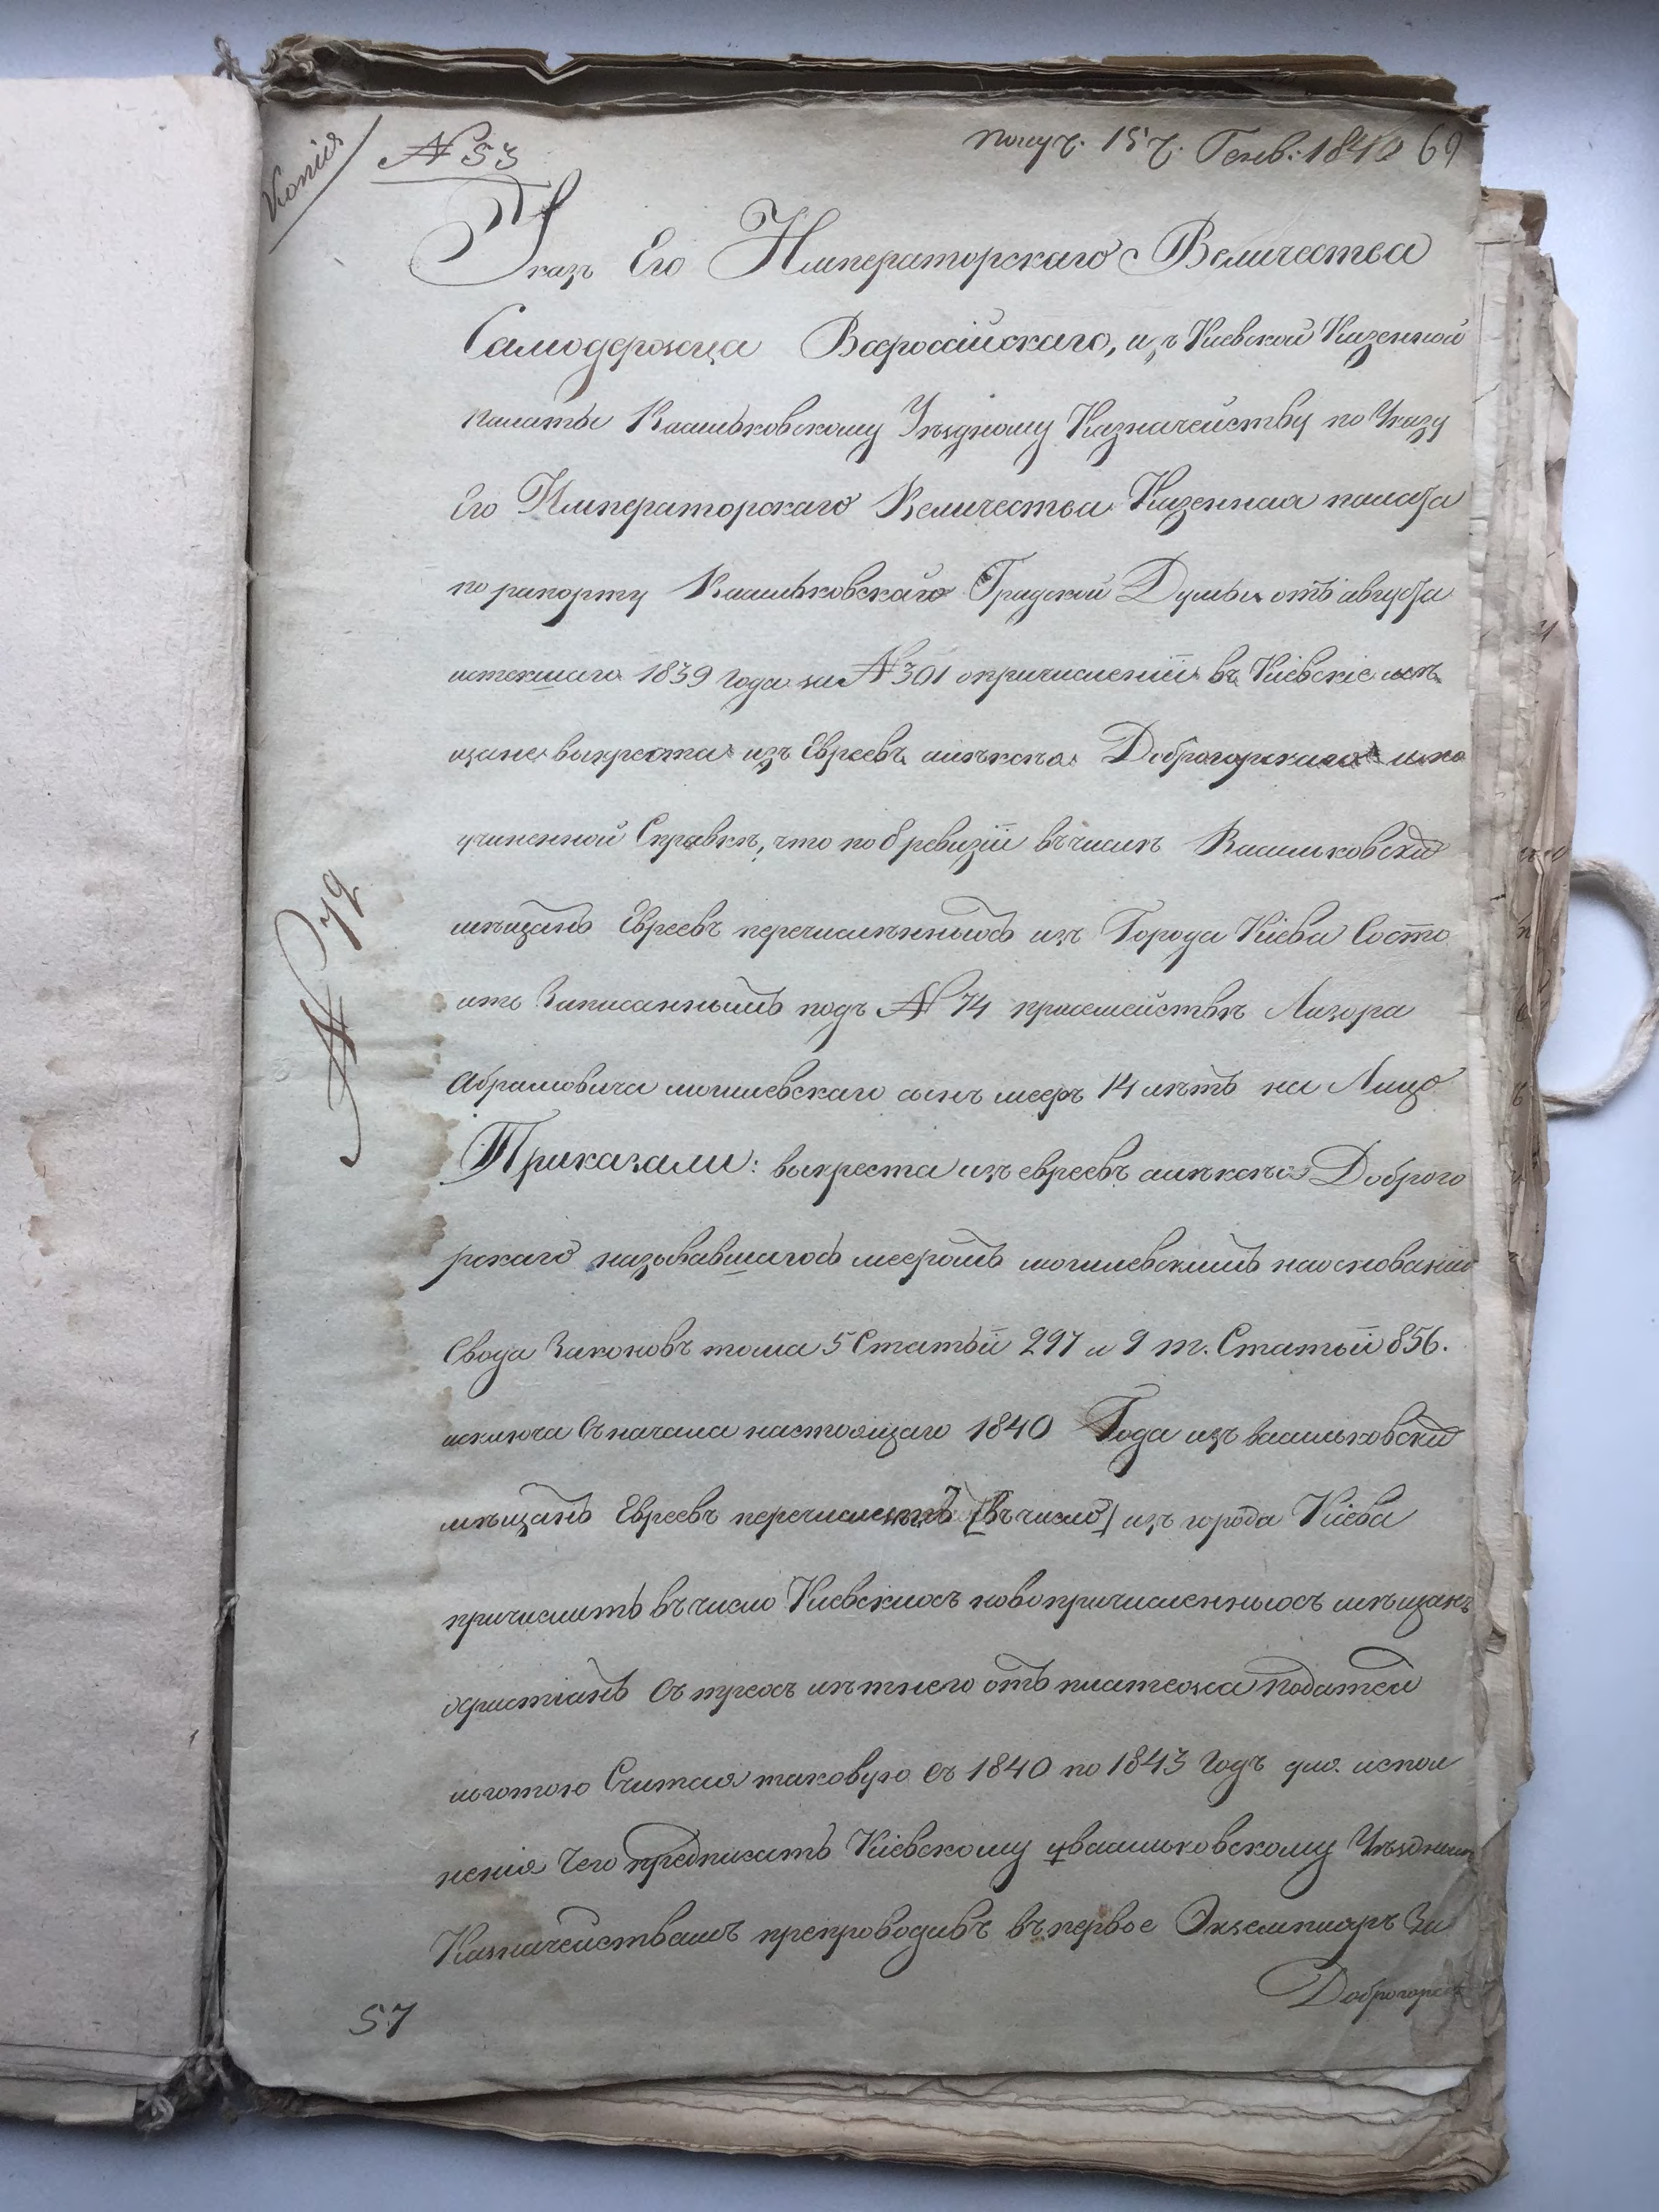 Копія
№ 53
получ. 15 г. Генв: 1840 69
Указъ Его Императорскаго Величества
Самодержца Всероссійскаго, изъ Киевской Казенной
палаты Васильковскому Уѣздному Казначейству по Указу
Его Императорскаго Величества Казенная палата
по рапорту Васильковскаго Градской Думы отъ августа
истекшаго 1839 года за № 301 опричисленіи въ Кіевскіе мѣ
щане выкреста изъ Евреевъ алѣксѣя Доброгорскаго и по
учиненной Справкѣ, что по 8 ревизіи въчислѣ Васильковских
мѣщанъ Евреевъ перечисленныхъ изъ Города Кіева Состо
итъ Записаннымъ подъ № 74 присемействѣ Лазора
Абрамовича могилевскаго сынъ мееръ 14 лѣтъ на Лицо
Приказали: выкреста изъ евреевъ алѣксѣя Доброго
рскаго называвшагось мееромъ могилевскимъ наосновании
Свода Законовъ тома 5 Статьи 297 и 9 т. Статьи 856.
исключа съначала настоящаго 1840 Года изъ васильковских
мѣщанъ Евреевъ перечислен [въчисло] изъ города Кіева
причислить въчисло Киевскихъ новопричисленныхъ мѣщанъ
христіанъ Съ трехъ лѣтнею отъ платежа податей
льготою Считая таковую съ 1840 по 1843 годъ для испол
ненія чего предписать Кіевскому и васильковскому Уѣзднымъ
Казначействамъ препроводивъ въпервое Экземпляръ За
Доброгорск
№ 79
57